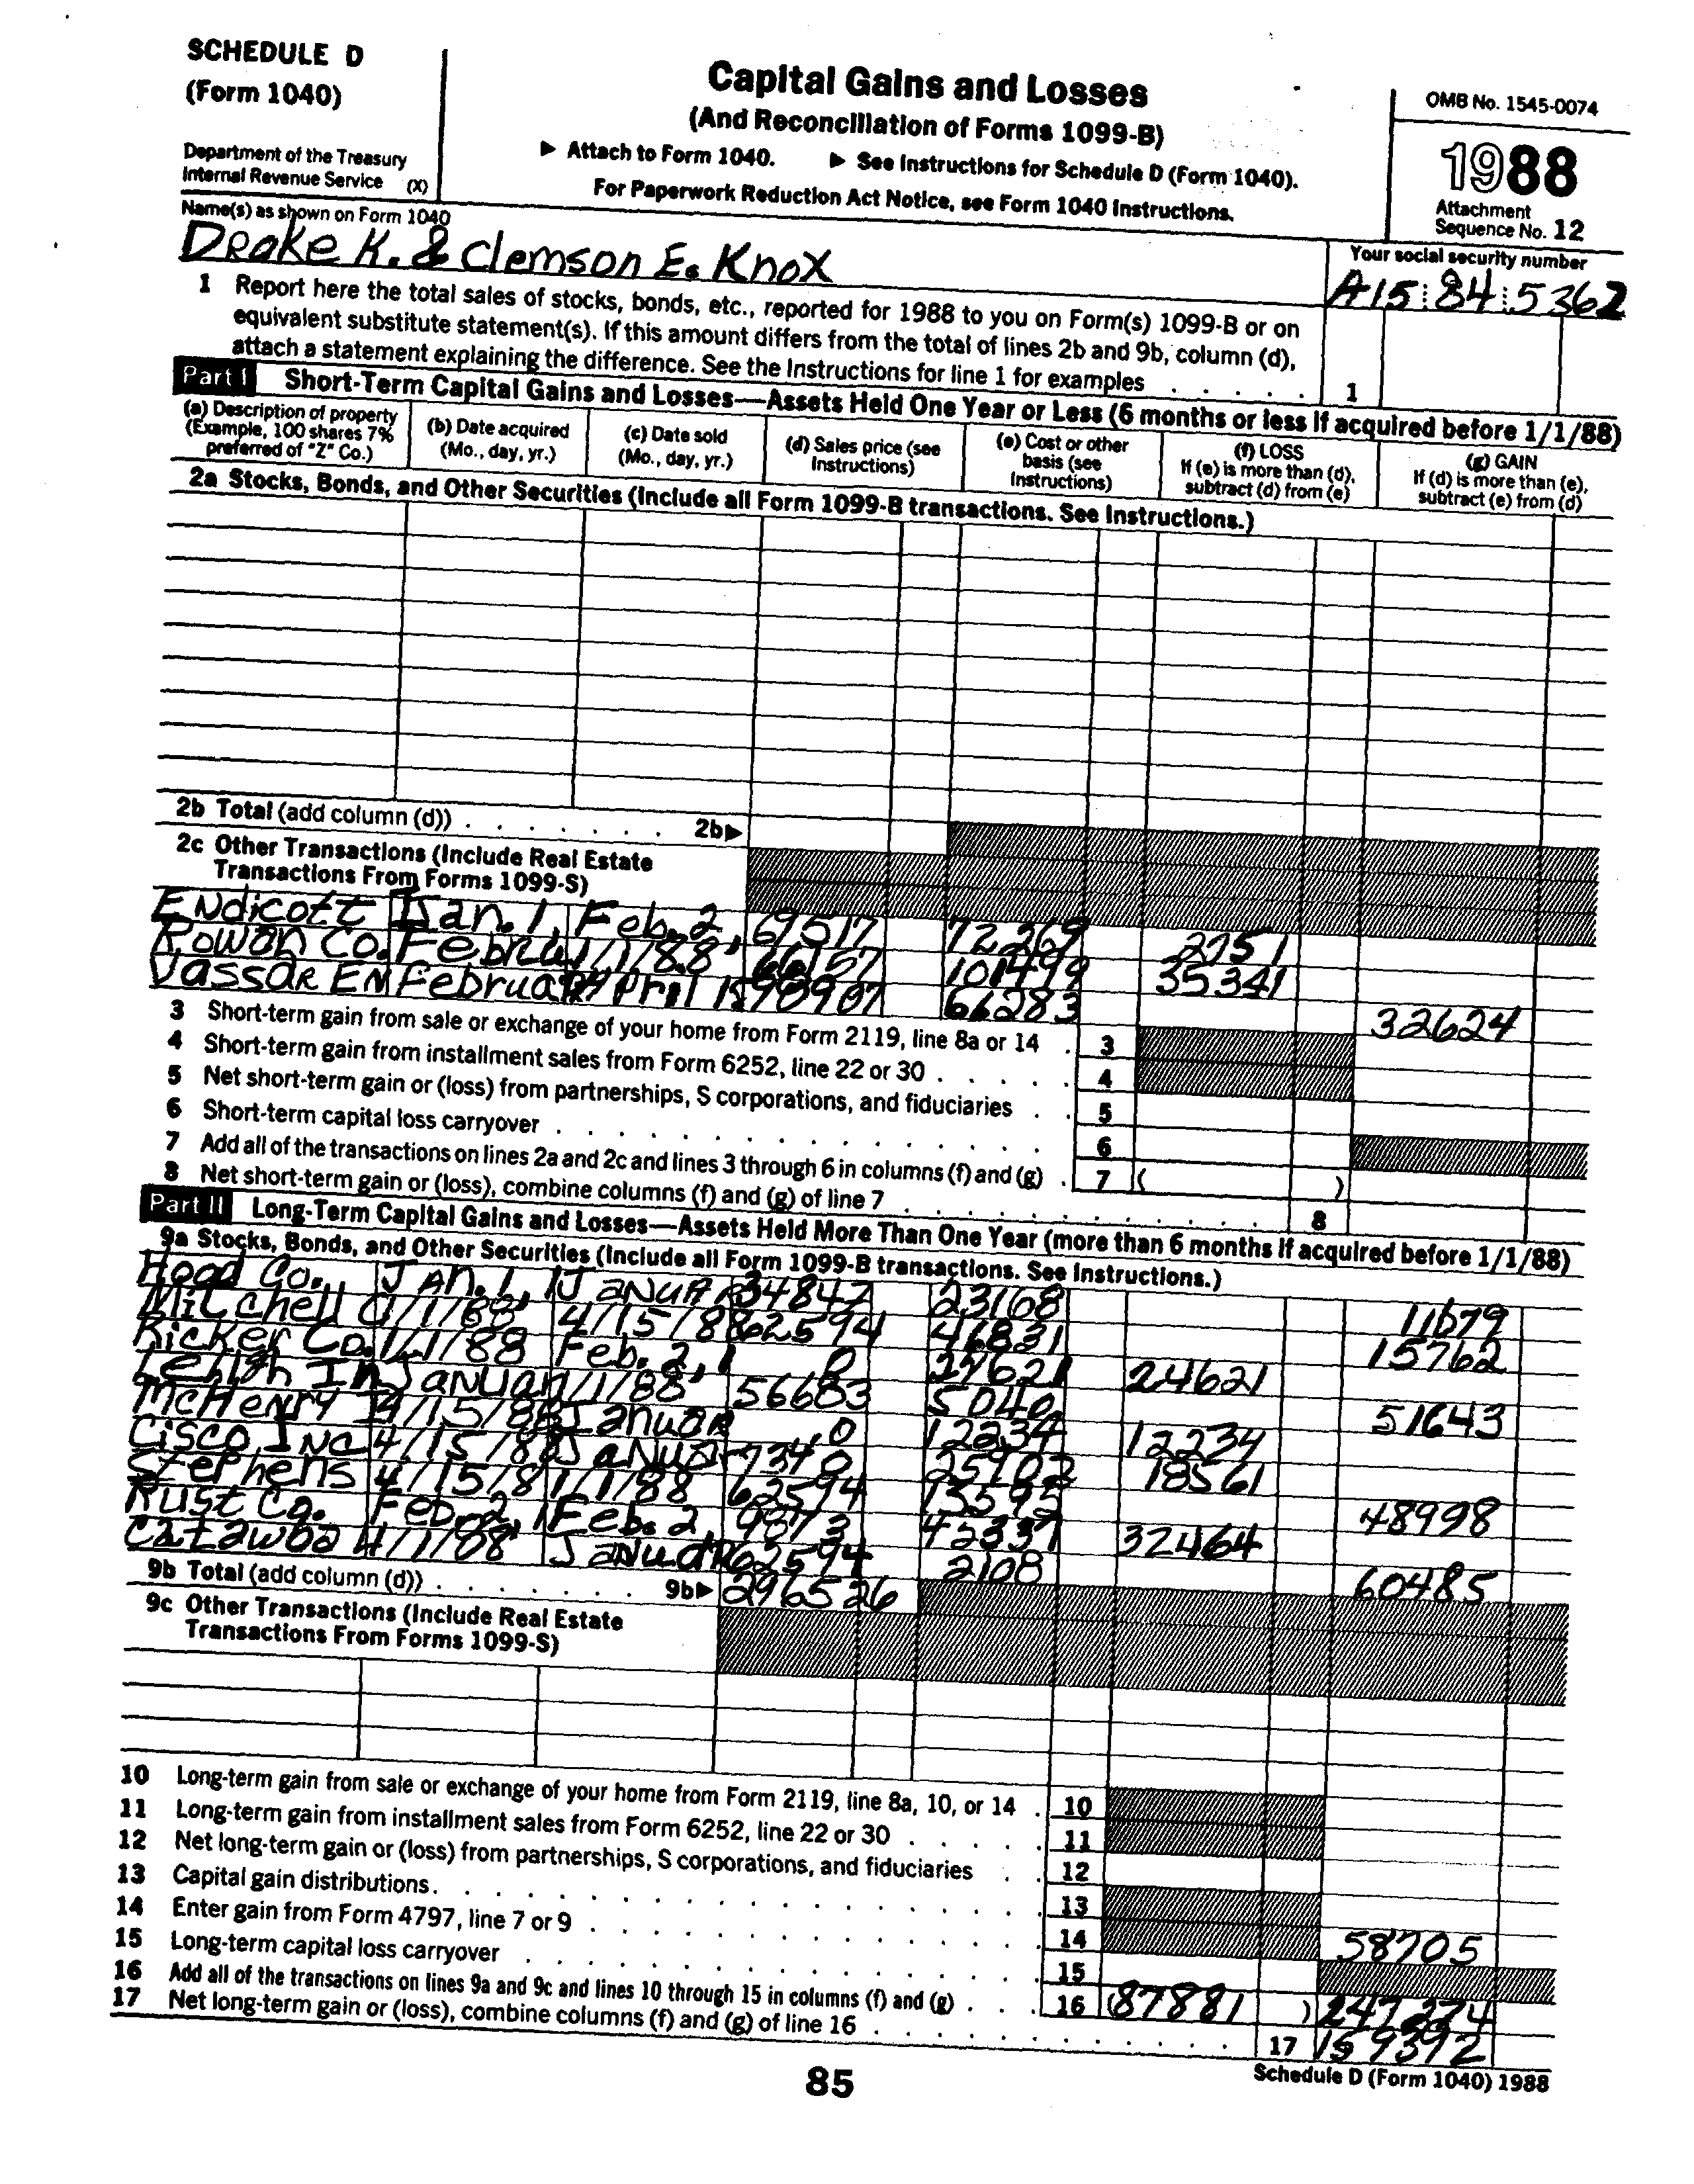 SCHEDULE D
(Form 1040)
Department of the Treasury
Internal Revenue Service (X)
Capital Gains and Losses
(And Reconciliation of Forms 1099-B)
▶ Attach to Form 1040. ▶ See Instructions for Schedule D (Form 1040).
For Paperwork Reduction Act Notice, see Form 1040 Instructions.
OMB No. 1545-0074
1988
Attachment
Sequence No. 12
Name(s) as shown on Form 1040
Drake K. & Clemson E. Knox
Your social security number
A15 84 5362
1 Report here the total sales of stocks, bonds, etc., reported for 1988 to you on Form(s) 1099-B or on
equivalent substitute statement(s). If this amount differs from the total of lines 2b and 9b, column (d),
attach a statement explaining the difference. See the Instructions for line 1 for examples . . . . . 1
Part I Short-Term Capital Gains and Losses—Assets Held One Year or Less (6 months or less if acquired before 1/1/88)
(a) Description of property
(Example, 100 shares 7%
preferred of "Z" Co.)
(b) Date acquired
(Mo., day, yr.)
(c) Date sold
(Mo., day, yr.)
(d) Sales price (see
Instructions)
(e) Cost or other
basis (see
Instructions)
(f) LOSS
If (e) is more than (d),
subtract (d) from (e)
(g) GAIN
If (d) is more than (e),
subtract (e) from (d)
2a Stocks, Bonds, and Other Securities (Include all Form 1099-B transactions. See Instructions.)
2b Total (add column (d)) . . . . . . . 2b▶
2c Other Transactions (Include Real Estate
Transactions From Forms 1099-S)
Endicott Jan. 1, Feb. 2, 69517 72269 2751
Rowan Co. Februa 1/1/88 66157 101499 35341
Vassar En Februar April 15 98907 66283 32624
3 Short-term gain from sale or exchange of your home from Form 2119, line 8a or 14 . 3
4 Short-term gain from installment sales from Form 6252, line 22 or 30 . . . . . 4
5 Net short-term gain or (loss) from partnerships, S corporations, and fiduciaries . . 5
6 Short-term capital loss carryover . . . . . . . . . . . . . . . . 6
7 Add all of the transactions on lines 2a and 2c and lines 3 through 6 in columns (f) and (g) . 7 ( )
8 Net short-term gain or (loss), combine columns (f) and (g) of line 7 . . . . . . . . . . . . 8
Part II Long-Term Capital Gains and Losses—Assets Held More Than One Year (more than 6 months if acquired before 1/1/88)
9a Stocks, Bonds, and Other Securities (Include all Form 1099-B transactions. See Instructions.)
Hood Co. Jan. 1, Januar 34847 23168 11679
Mitchell 1/1/88, 4/15/88 62594 46831 15762
Ricker Co. 1/1/88 Feb. 2, 0 24621 24621
Lehigh In Januar 1/1/88 56683 5040 51643
McHenry 4/15/88 Januar 0 12234 12234
Cisco Inc 4/15/88 Januar 7340 25902 18561
Stephens 4/15/8 1/1/88 62594 13595 48998
Rust Co. Feb. 2, Feb. 2, 9873 42337 32464
Catawba 4/1/88 Januar 62594 2108 60485
9b Total (add column (d)) . . . . . . . 9b▶ 296526
9c Other Transactions (Include Real Estate
Transactions From Forms 1099-S)
10 Long-term gain from sale or exchange of your home from Form 2119, line 8a, 10, or 14 . 10
11 Long-term gain from installment sales from Form 6252, line 22 or 30 . . . . 11
12 Net long-term gain or (loss) from partnerships, S corporations, and fiduciaries . . 12
13 Capital gain distributions. . . . . . . . . . . . . . . 13
14 Enter gain from Form 4797, line 7 or 9 . . . . . . . . . . . . . 14 58705
15 Long-term capital loss carryover . . . . . . . . . . . . . . 15
16 Add all of the transactions on lines 9a and 9c and lines 10 through 15 in columns (f) and (g) . . . 16 (87881 ) 247274
17 Net long-term gain or (loss), combine columns (f) and (g) of line 16 . . . . . . . . . . . . 17 159392
85
Schedule D (Form 1040) 1988